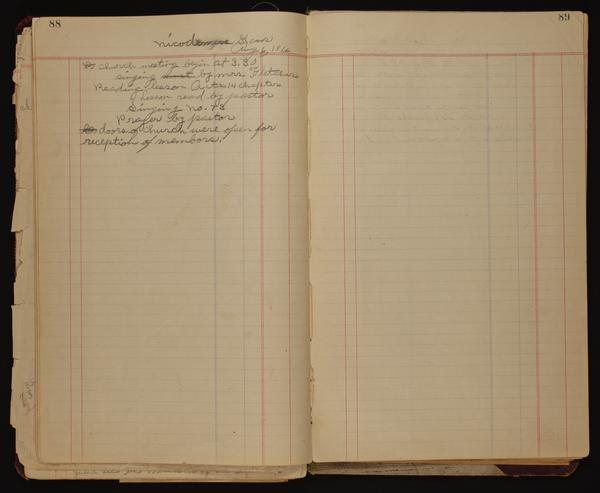 88
Nicodemus Kans
Aug 6, 19
church meeting begin at 3.30
singing by mrs Fletcher
Reading lesson Acts 14 chapter
Lesson read by pastor
Singing no. 73
Prayer by pastor
doors of Church were open for
reception of members.
89